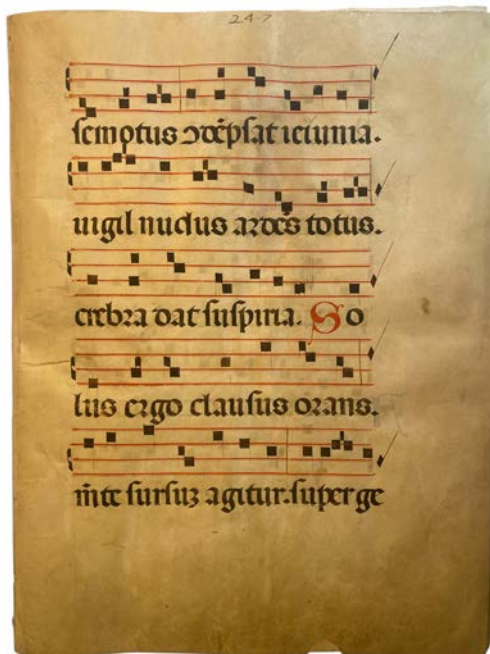 24-7
semotus ↄdēpsat ieiunia.
uigil nudus ardēs totus.
crebra dat suspiria. So
lus ergo clausus orans.
m̄te sursuꝫ agitur. super ge